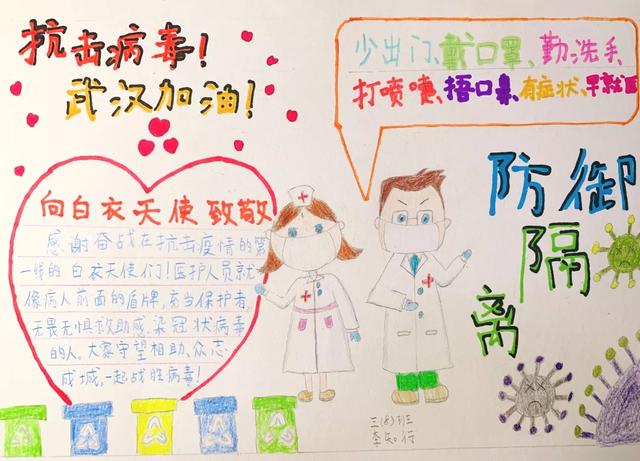 抗击病毒！
武汉加油！
少出门、戴口罩、勤洗手、
打喷嚏、捂口鼻、有症状、早就医
向白衣天使致敬
感谢奋战在抗击疫情的第
一线的白衣天使们！医护人员就
像病人前面的盾牌，充当保护者，
无畏无惧救助感染冠状病毒
的人。大家守望相助、众志
成城，一起战胜病毒！
防御
隔
离
三(8)班
李知行